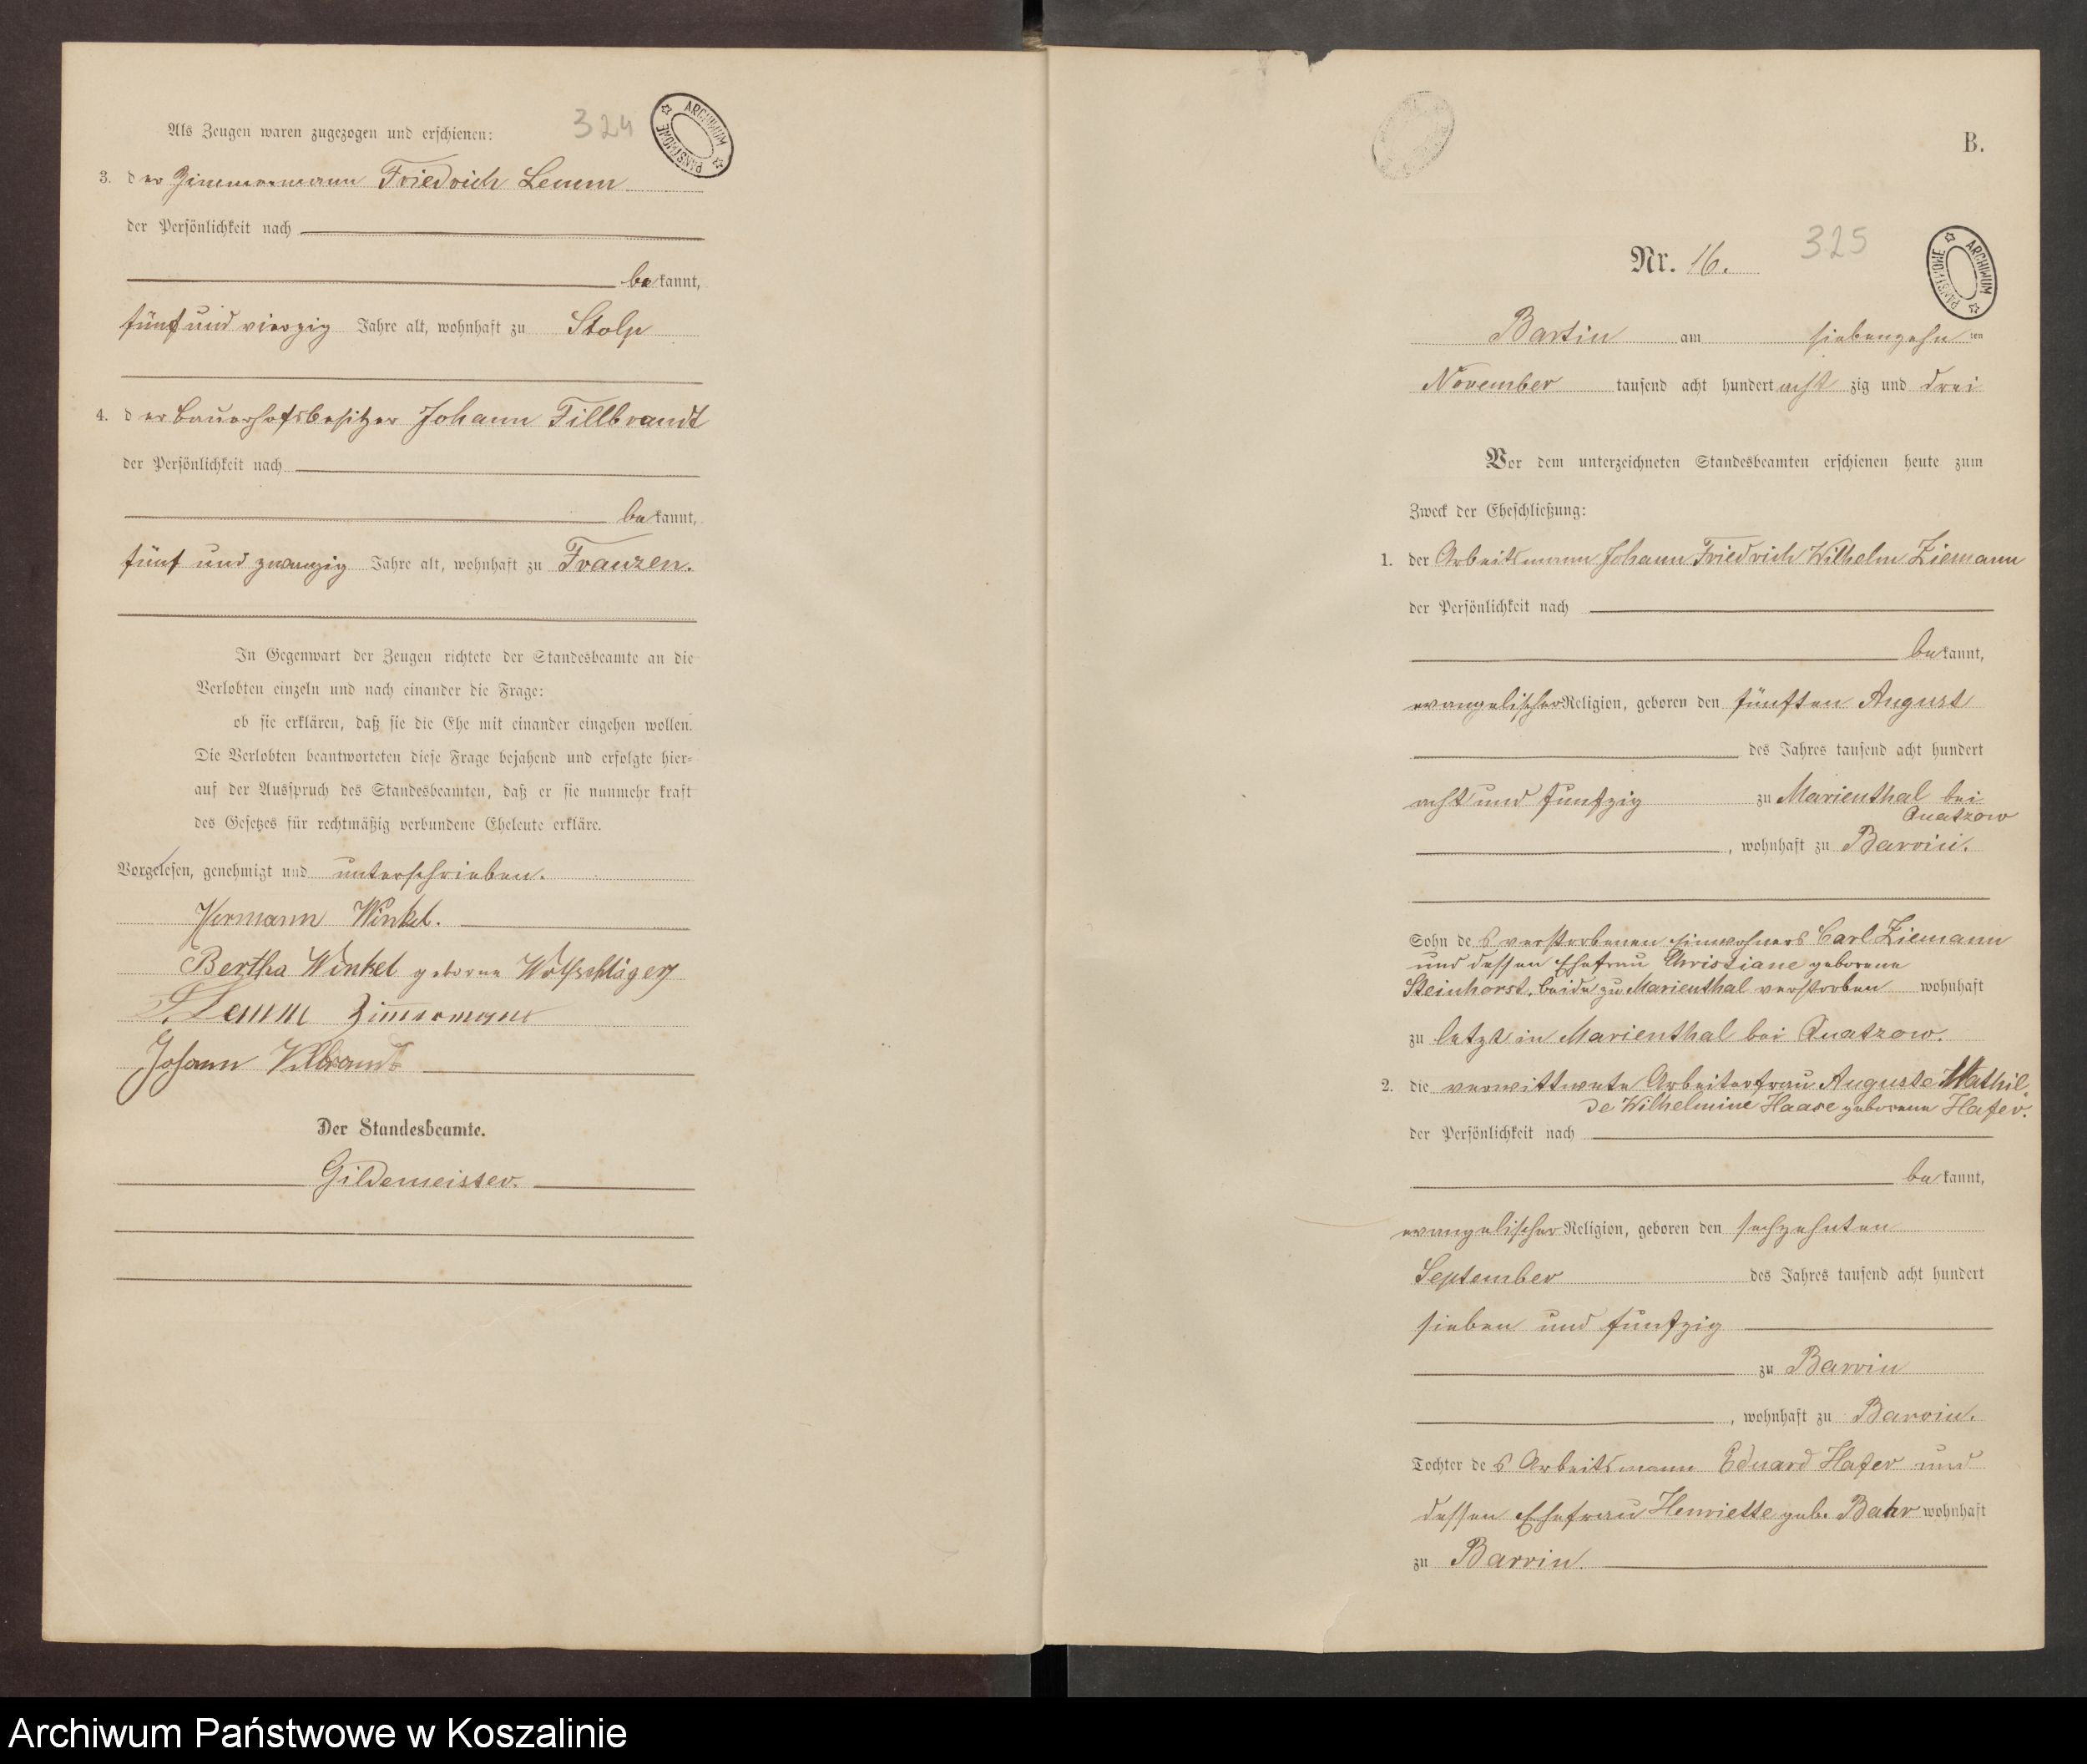 324
Als Zeugen waren zugezogen und erschienen:
ARCHIWUM PAŃSTWOWE
3. der Zimmermann Friedrich Lemm
der Persönlichkeit nach
bekannt,
fünf und vierzig Jahre alt, wohnhaft zu Stolp
4. der Bauerhofsbesitzer Johann Fillbrandt
der Persönlichkeit nach
bekannt,
fünf und zwanzig Jahre alt, wohnhaft zu Franzen.
In Gegenwart der Zeugen richtete der Standesbeamte an die
Verlobten einzeln und nach einander die Frage:
ob sie erklären, daß sie die Ehe mit einander eingehen wollen.
Die Verlobten beantworteten diese Frage bejahend und erfolgte hier-
auf der Ausspruch des Standesbeamten, daß er sie nunmehr kraft
des Gesetzes für rechtmäßig verbundene Eheleute erkläre.
Vorgelesen, genehmigt und unterschrieben.
Hermann Winkel.
Bertha Winkel geborne Wolfschläger
F. Lemm Zimmermann
Johann
Der Standesbeamte.
Gildemeister.
B.
325
Nr. 16.
ARCHIWUM PAŃSTWOWE
Bartin am siebenzehn ten
November tausend acht hundert acht zig und drei
Vor dem unterzeichneten Standesbeamten erschienen heute zum
Zweck der Eheschließung:
1. der Arbeitsmann Johann Friedrich Wilhelm Ziemann
der Persönlichkeit nach
bekannt,
evangelischer Religion, geboren den fünften August
des Jahres tausend acht hundert
acht und funfzig zu Marienthal bei
Quatzow
, wohnhaft zu Barvin.
Sohn des verstorbenen Einwohners Carl Ziemann
und dessen Ehefrau Christiane geborene
Steinhorst, beide zu Marienthal verstorben wohnhaft
zu letzt in Marienthal bei Quatzow.
2. die verwittwete Arbeiterfrau Auguste Mathil
de Wilhelmine Haase geborene Hafer.
der Persönlichkeit nach
bekannt,
evangelischer Religion, geboren den sechzehnten
September des Jahres tausend acht hundert
sieben und funfzig
zu Barvin
, wohnhaft zu Barvin.
Tochter des Arbeitsmann Eduard Hafer und
dessen Ehefrau Henriette geb. Bahr wohnhaft
zu Barvin.
Archiwum Państwowe w Koszalinie